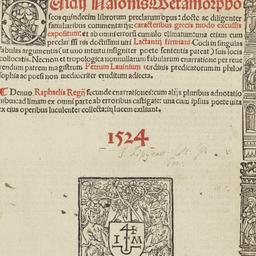 Ouidij Nasonis Metamorpho
seos quindecim librorum preclarum opus: docte ac diligenter
familiaribus commentarijs: caracteribus grecis modo excussis
expositum: et ab omni errorū cumulo elimatum: una etiam cum
preclarissimi viri doctissimi Lactantij firmiani Cocis in singulas
fabulas argumentis: ut uno intuitu insignis Poete sententia pateat: suis locis
collocatis. Necnon et tropologica nonnullarum fabularum enarratione per reue
rendum patrem magistrum Petrum Lauinium ordinis predicatorum philo
sophia ac poesi non mediocriter eruditum adiecta.
Denuo Raphaelis Regij fecunde enarrationes: cum alijs pluribus adnotatio
nibus: ad limam ex omni parte ab erroribus castigate: una cum ipsius poete vita
ex eius operibus luculenter collecta: in lucem exiliunt.
1524
I M